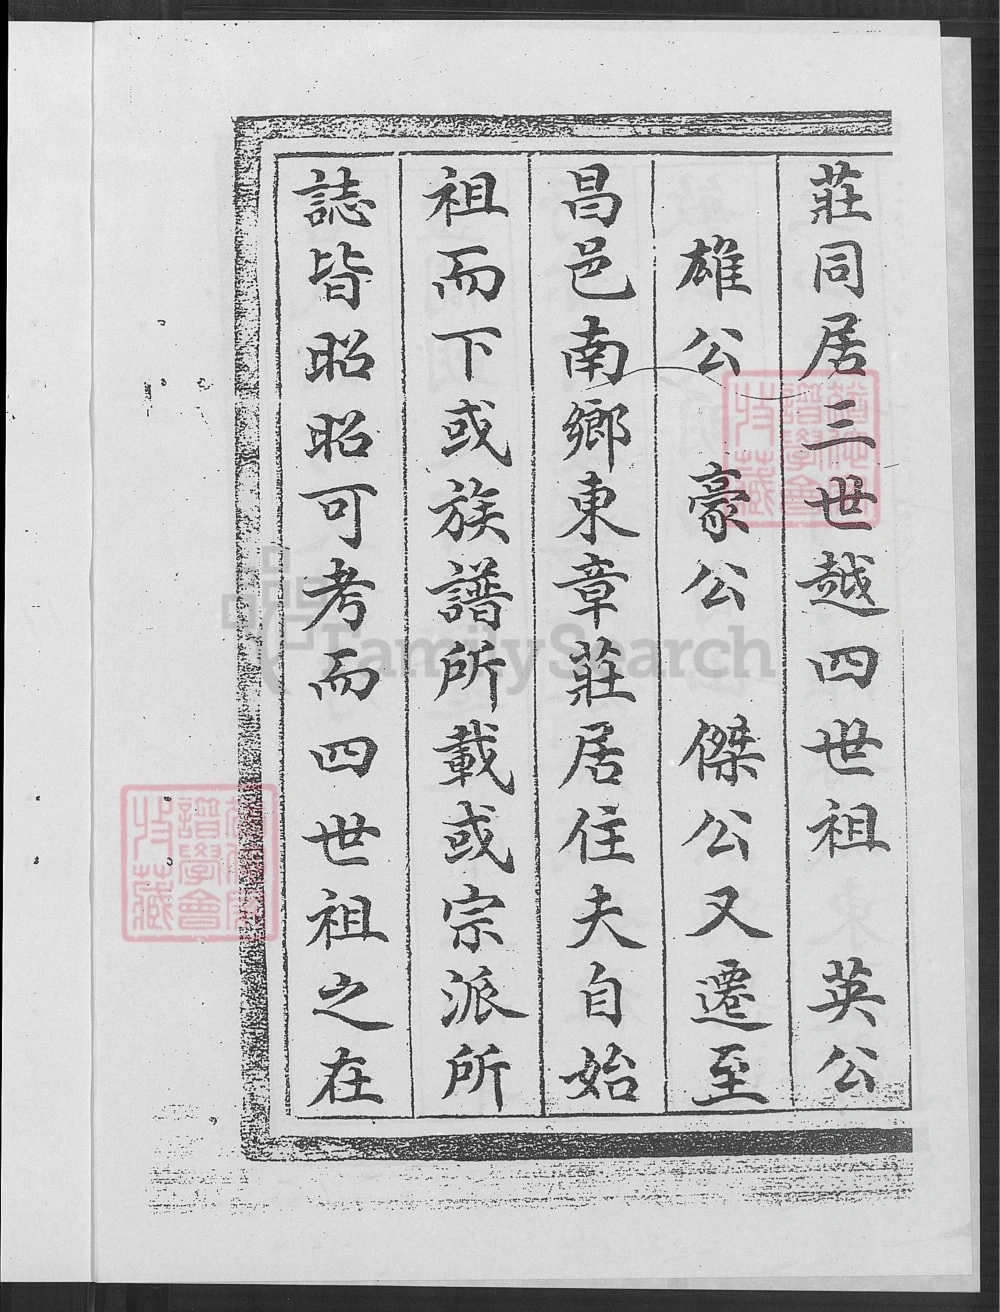 莊同居三世越四世祖　英公
雄公　豪公　傑公又遷至
昌邑南鄉東章莊居住夫自始
祖而下或族譜所載或宗派所
誌皆昭昭可考而四世祖之在
譜學會
收藏
譜學會
收藏
FamilySearch